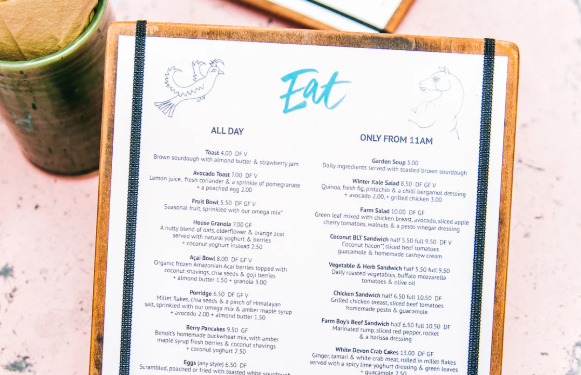 Eat
ALL DAY
Toast 4.00 DF V
Brown sourdough with almond butter & strawberry jam
Avocado Toast 7.00 DF V
Lemon juice, fresh coriander & a sprinkle of pomegranate
+ a poached egg 2.00
Fruit Bowl 5.50 DF GF V
Seasonal fruit, sprinkled with our omega mix*
House Granola 7.00 GF
A nutty blend of oats, elderflower & orange zest
served with natural yoghurt & berries
+ coconut yoghurt instead 2.50
Açai Bowl 8.00 DF GF V
Organic frozen Amazonian Acai berries topped with
coconut shavings, chia seeds & goji berries
+ almond butter 1.50 + granola 3.00
Porridge 6.50 DF GF V
Millet flakes, chia seeds & a pinch of Himalayan
salt, sprinkled with our omega mix & amber maple syrup
+ avocado 2.00 + almond butter 1.50
Berry Pancakes 9.50 GF
Benoit's homemade buckwheat mix, with amber
maple syrup fresh berries & coconut shavings
+ coconut yoghurt 2.50
Eggs (any style) 6.50 DF
Scrambled, poached or fried with toasted white sourdough
ONLY FROM 11AM
Garden Soup 5.00
Daily ingredients served with toasted brown sourdough
Winter Kale Salad 8.50 DF GF V
Quinoa, fresh fig, pistachio & a chilli bergamot dressing
+ avocado 2.00, + grilled chicken 3.00
Farm Salad 10.00 DF GF
Green leaf mixed with chicken breast, avocado, sliced apple
cherry tomatoes, walnuts & a pesto vinegar dressing
Coconut BLT Sandwich half 5.50 full 9.50 DF V
Coconut bacon**, sliced beef tomatoes
guacamole & homemade cashew cream
Vegetable & Herb Sandwich half 5.50 full 9.50
Daily roasted vegetables, buffalo mozzarella
tomatoes & olive oil
Chicken Sandwich half 6.50 full 10.50 DF
Grilled chicken breast, sliced beef tomatoes
homemade pesto & guacamole
Farm Boy's Beef Sandwich half 6.50 full 10.50 DF
Marinated rump, sliced red pepper, rocket
& a harissa dressing
White Devon Crab Cakes 13.00 DF GF
Ginger, tamari & white crab meat, rolled in millet flakes
served with a spicy lime yoghurt dressing & green leaves
+ guacamole 2.50